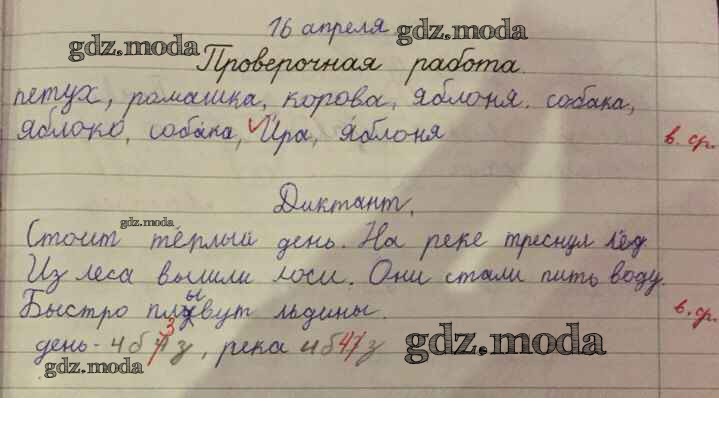 16 апреля
gdz.moda gdz.moda
Проверочная работа.
петух, ромашка, корова, яблоня. собака,
яблоко, собака, Ира, яблоня в. ср.
Диктант.
gdz.moda
Стоит тёплый день. На реке треснул лёд
Из леса вышли лоси. Они стали пить воду.
Быстро плывут льдины. в. ср.
день - 4б 3з, река 4б 4з
gdz.moda gdz.moda